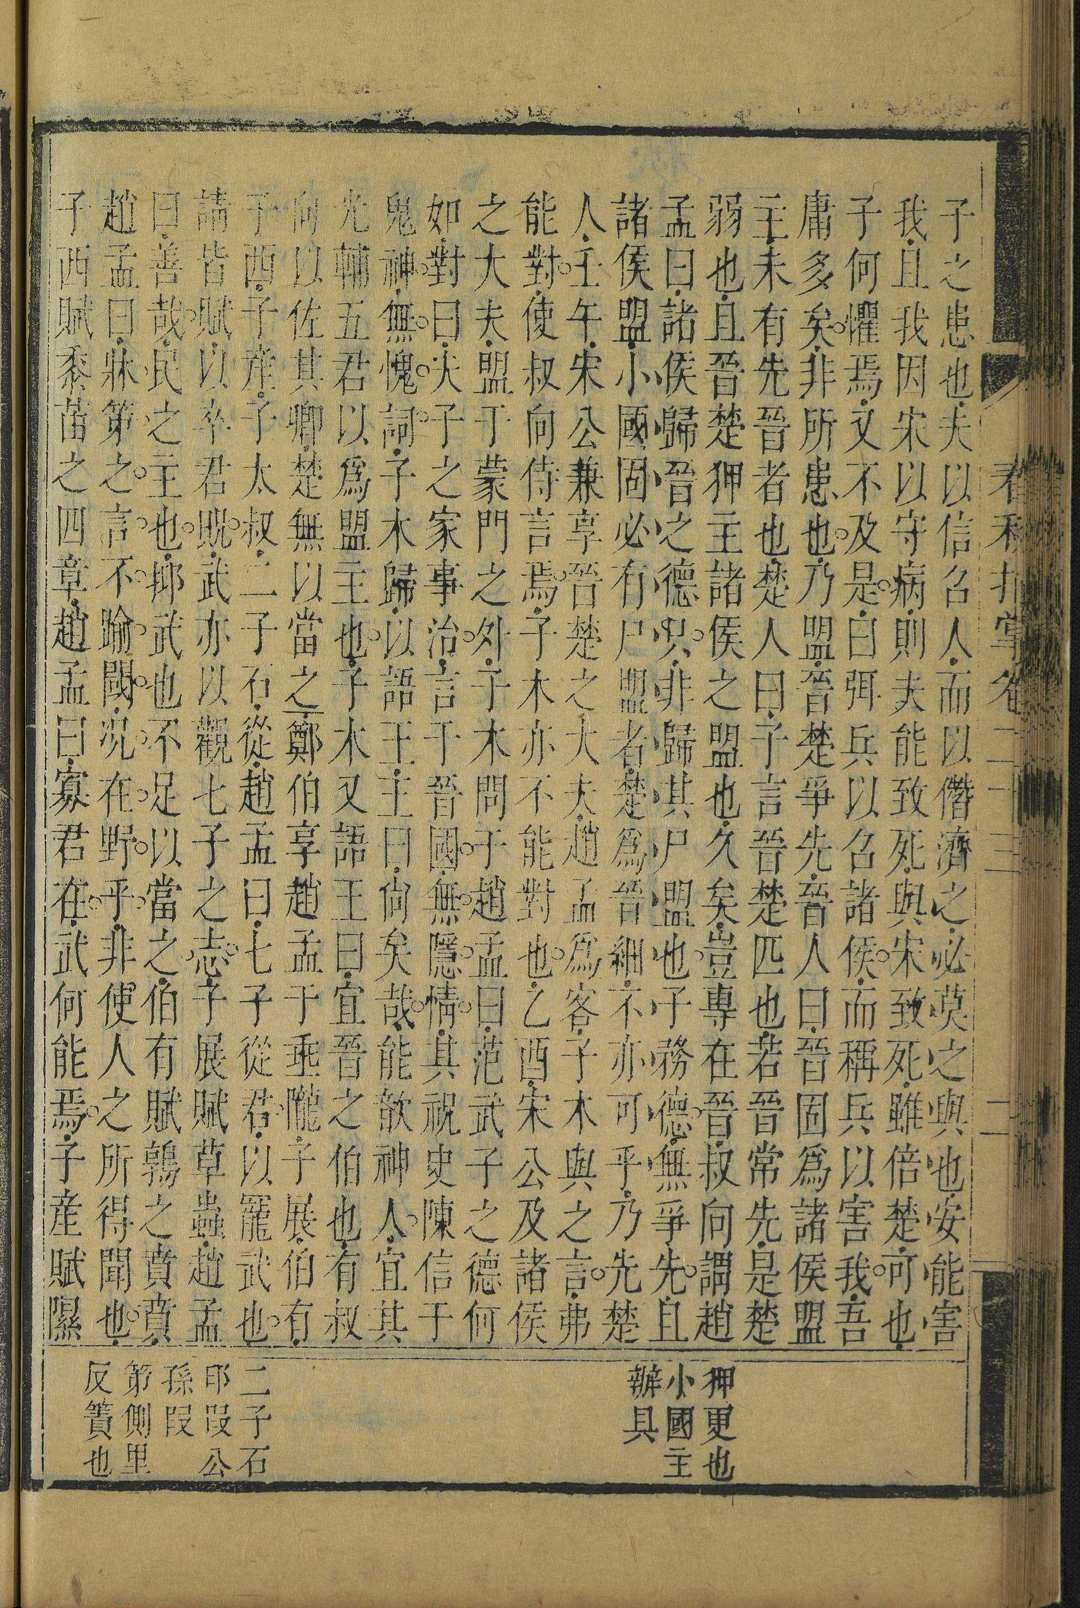 子之患也夫以信召人而以僭濟之必莫之與也安能害
我且我因宋以守病則夫能致死與宋致死雖倍楚可也
子何懼焉又不及是曰弭兵以召諸侯而稱兵以害我吾
庸多矣非所患也乃盟晉楚爭先晉人曰晉固爲諸侯盟
主未有先晉者也楚人曰子言晉楚匹也若晉常先是楚
弱也且晉楚狎主諸侯之盟也久矣豈專在晉叔向謂趙
孟曰諸侯歸晉之德只非歸其尸盟也子務德無爭先且
諸侯盟小國固必有尸盟者楚爲晉細不亦可乎乃先楚
人壬午宋公兼享晉楚之大夫趙孟爲客子木與之言弗
能對使叔向侍言焉子木亦不能對也乙酉宋公及諸侯
之大夫盟于蒙門之外子木問于趙孟曰范武子之德何
如對曰夫子之家事治言于晉國無隱情其祝史陳信于
鬼神無愧詞子木歸以語王王曰尚矣哉能歆神人宜其
光輔五君以爲盟主也子木又語王曰宜晉之伯也有叔
向以佐其卿楚無以當之鄭伯享趙孟于垂隴子展伯有
子西子產子太叔二子石從趙孟曰七子從君以寵武也
請皆賦以卒君貺武亦以觀七子之志子展賦草蟲趙孟
曰善哉民之主也抑武也不足以當之伯有賦鶉之賁賁
趙孟曰牀第之言不踰閾況在野乎非使人之所得聞也
子西賦黍苗之四章趙孟曰寡君在武何能焉子產賦隰
狎更也
小國主
辦具
二子石
印段公
孫段
第側里
反簀也
春秋指掌卷二十三